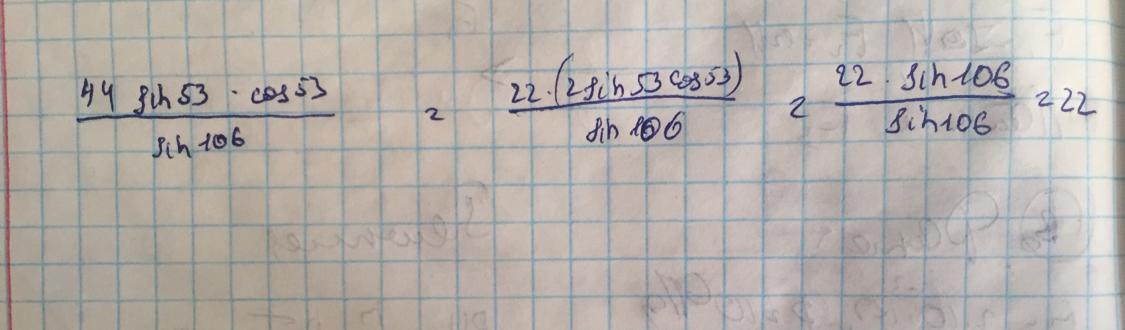 44 sin 53 · cos 53 / sin 106 = 22 · (2 sin 53 cos 53) / sin 106 = 22 · sin 106 / sin 106 = 22